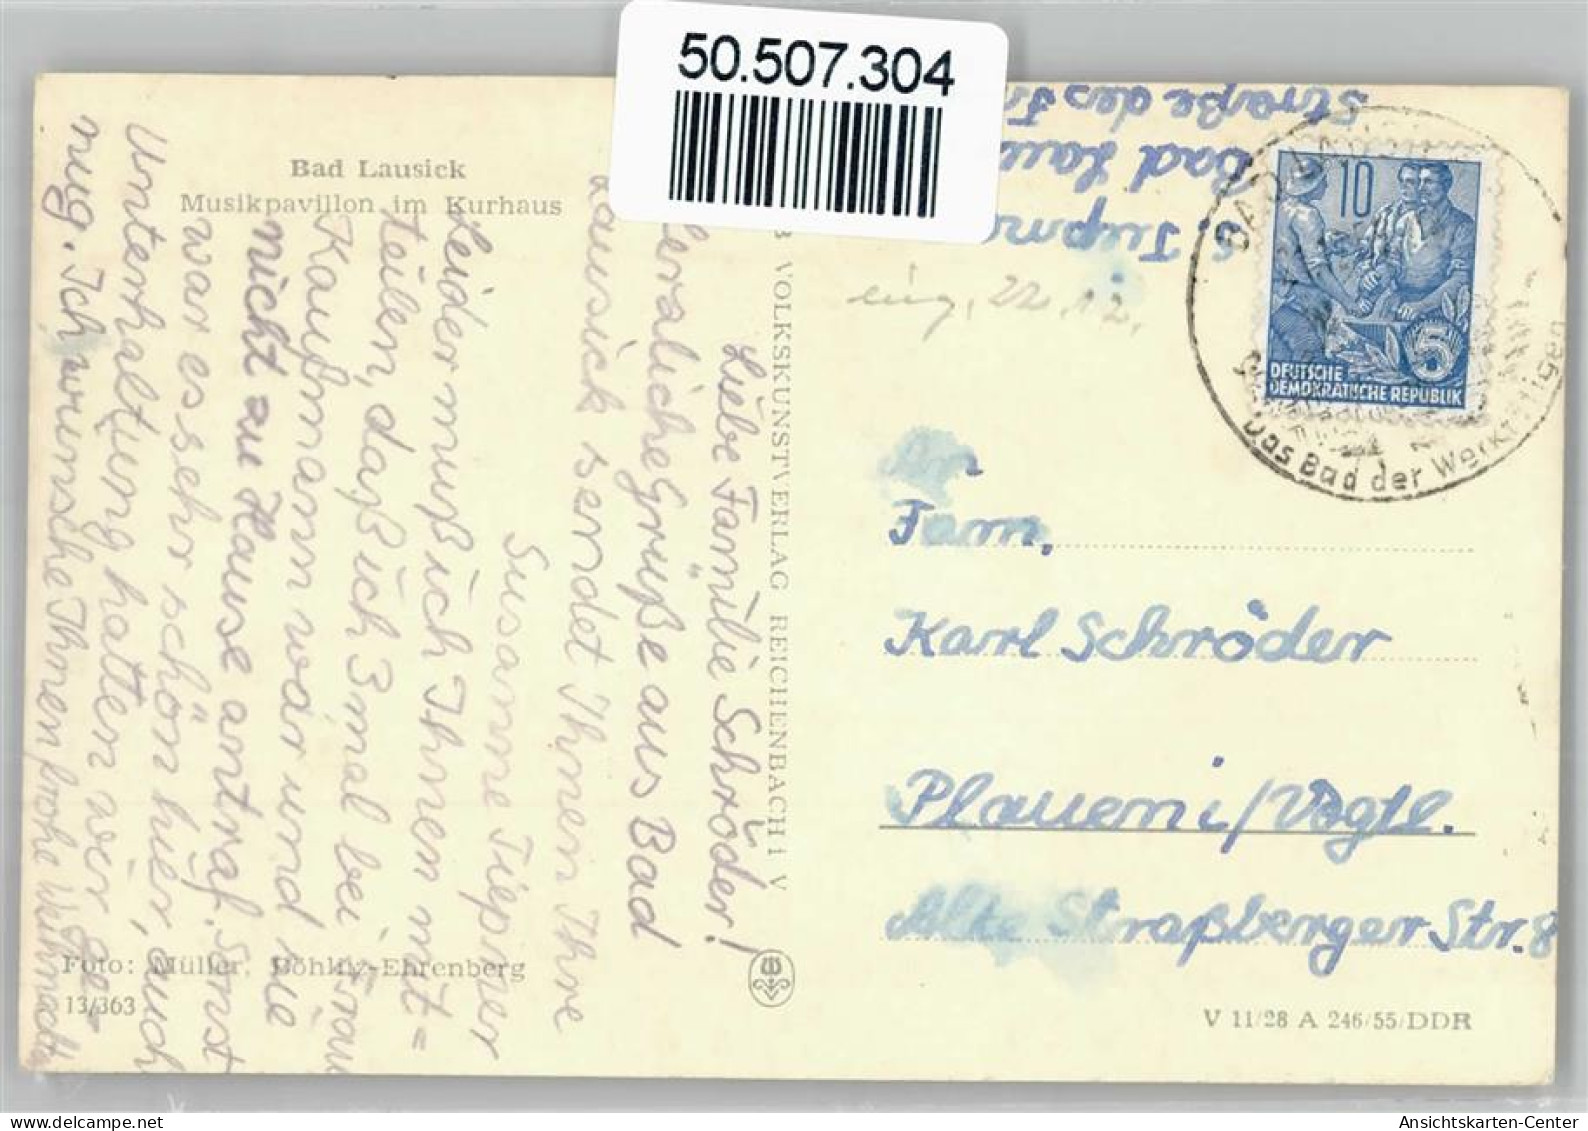 50.507.304
Bad Lausick
Musikpavillon im Kurhaus
Liebe Familie Schröder!
Herzliche Grüße aus Bad
Lausick sendet Ihnen Ihre
Susanne Tiepner
Leider muß ich Ihnen mit=
teilen, daß ich 3 mal bei Frau
Kaufmann war und sie
nicht zu Hause antraf. Sonst
war es sehr schön hier, auch
Unterhaltung hatten wir ge-
nug. Ich wünsche Ihnen frohe Weihnachten
Foto: Müller, Böhlitz-Ehrenberg
13/363
VOLKSKUNSTVERLAG REICHENBACH i V
S. Tiepn
Bad Lau
Straße des Fr
eing. 22.12.
10
5
DEUTSCHE
DEMOKRATISCHE REPUBLIK
BAD LAUSICK
Das Bad der Werktätigen
An
Fam.
Karl Schröder
Plauen i/Vogtl.
Alte Straßberger Str. 8
V 11/28 A 246/55/DDR
Ansichtskarten-Center